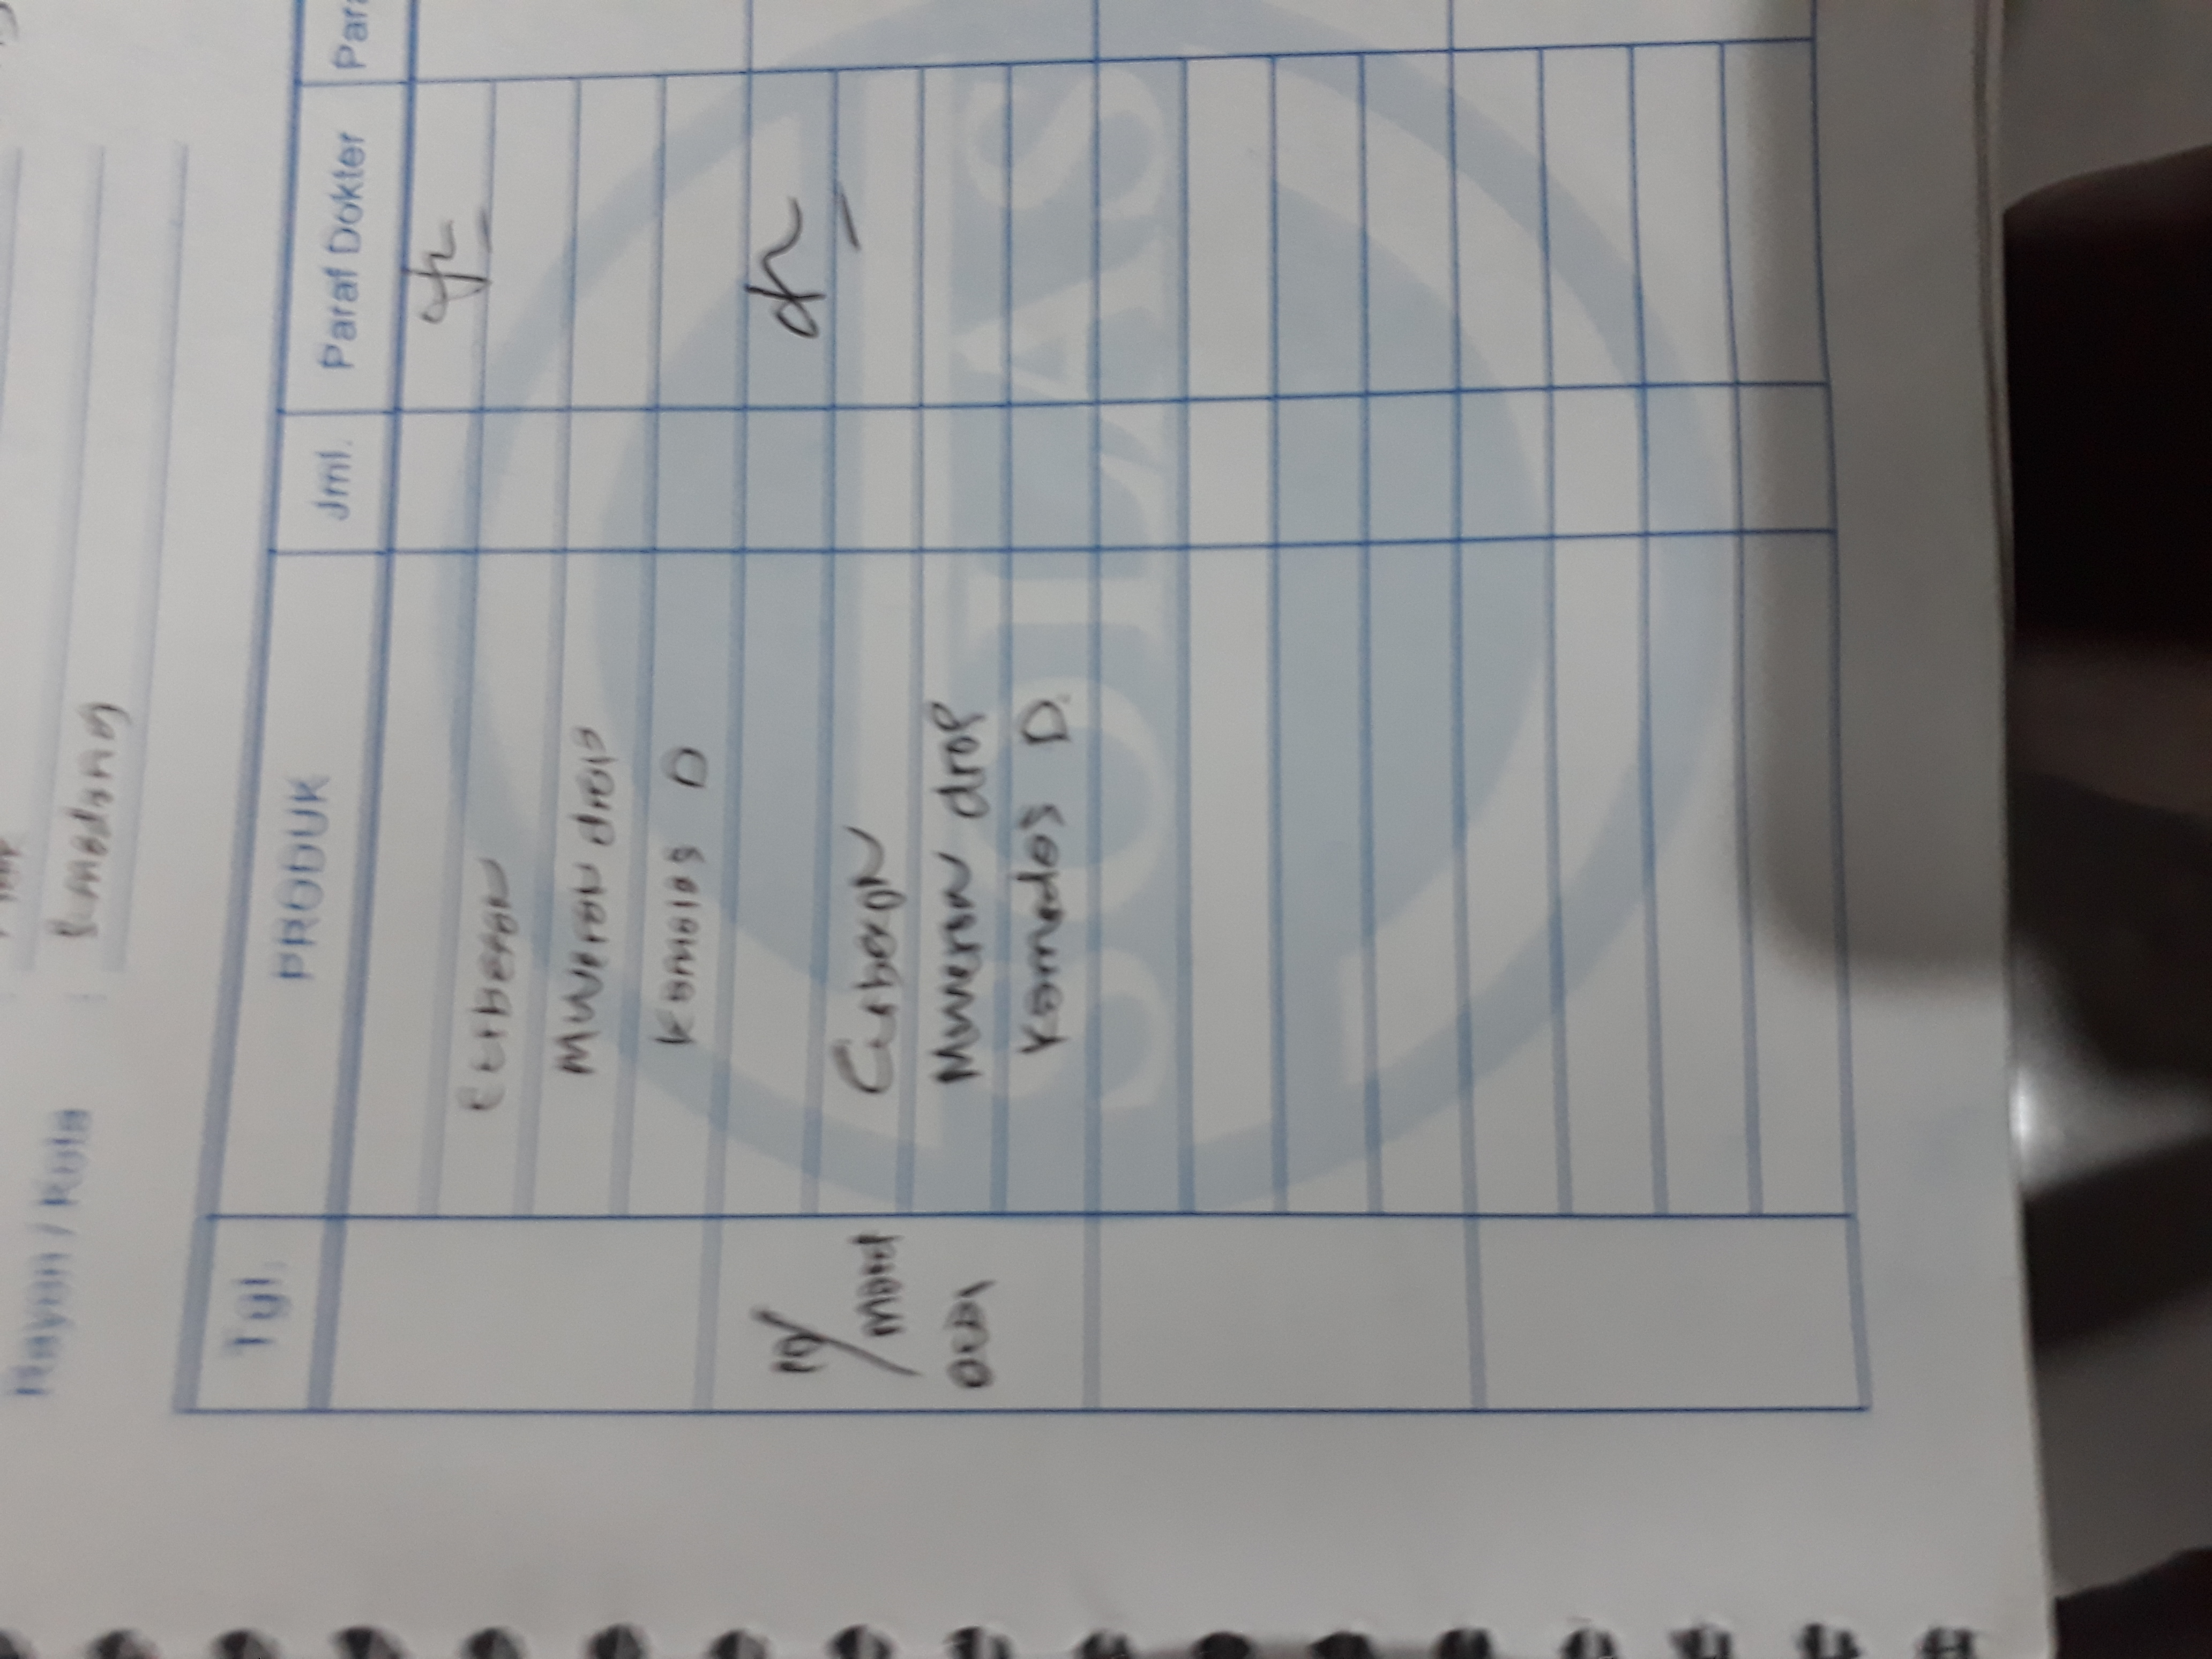 Rayon / Kota : Sumedang
Tgl. PRODUK Jml. Paraf Dokter Para
Curberon
Mweron drop
Komolos D
19/
Maret Curberon
Mweron drop
Komodos D.
SOLAS